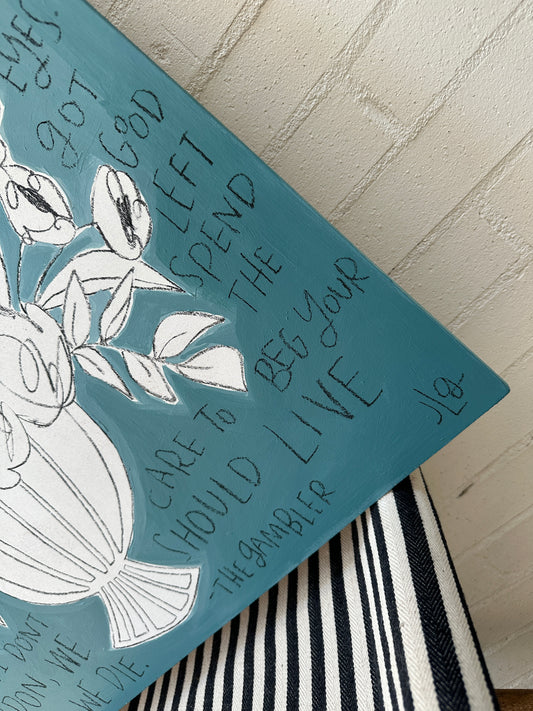 EYES.
GOT
GOD
LEFT
SPEND
THE
BEG YOUR
CARE TO
SHOULD LIVE
- THE GAMBLER
I DON'T
DON, WE
WE DIE.
JLG